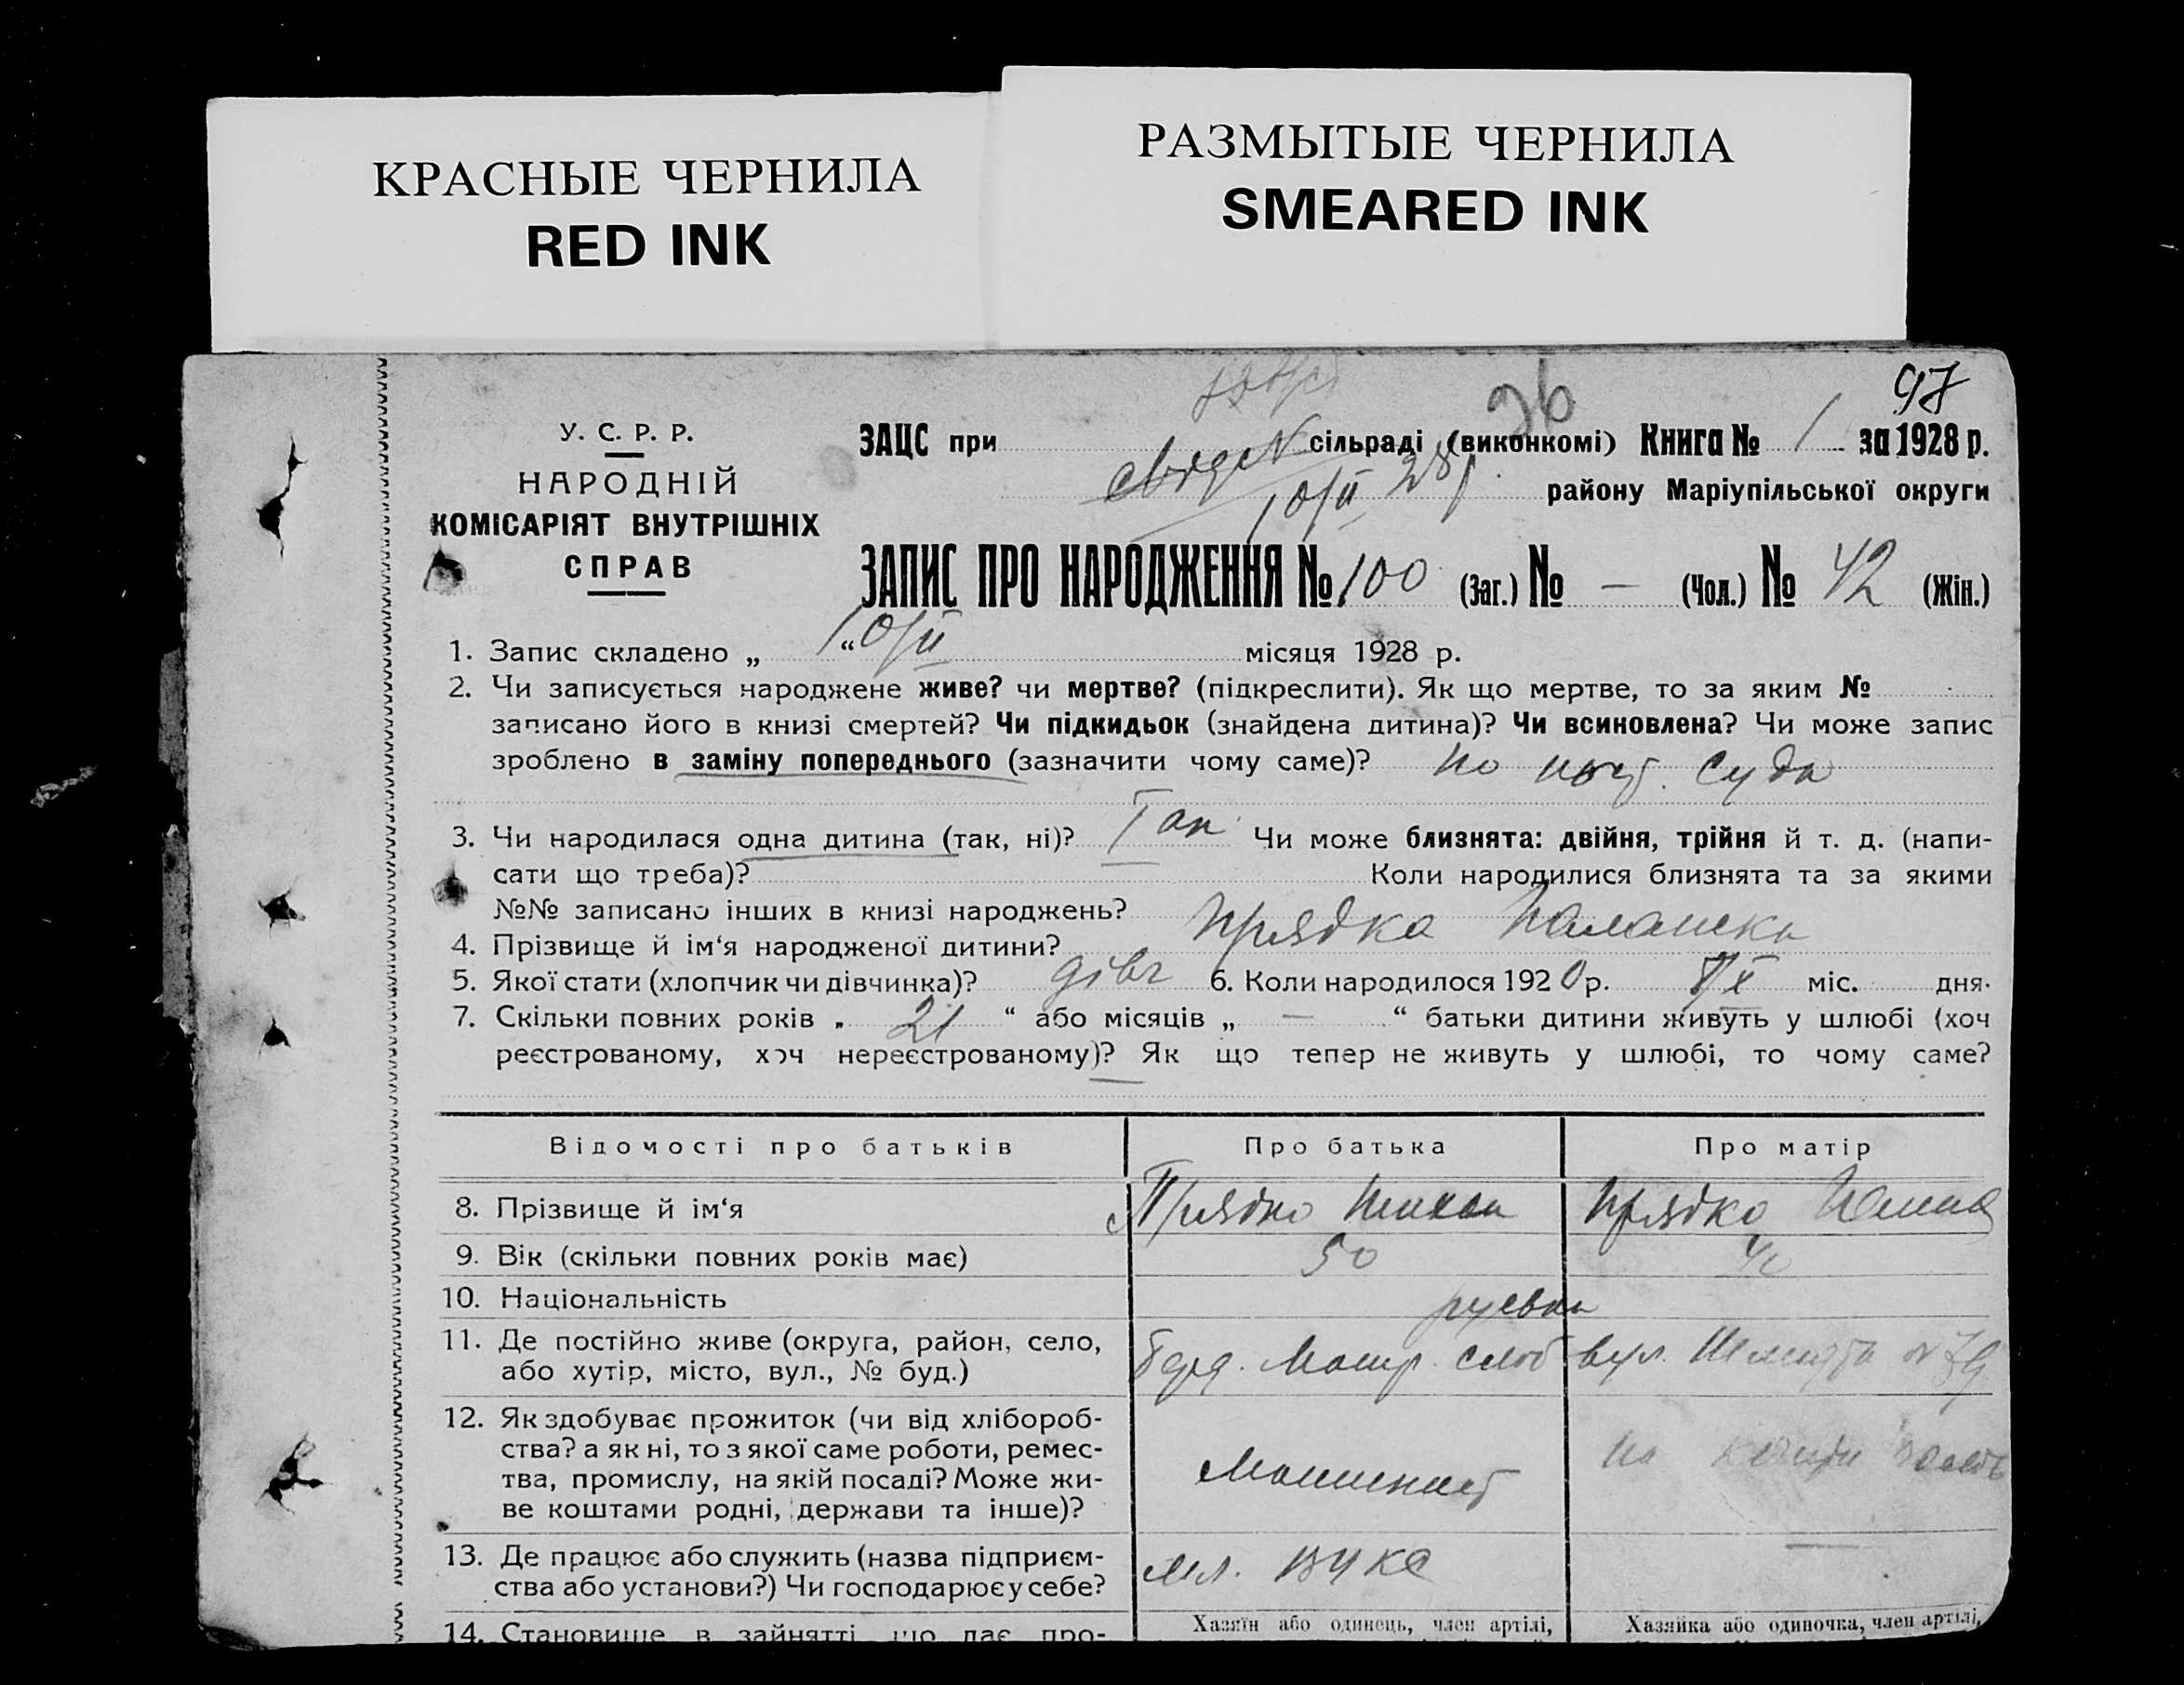 КРАСНЫЕ ЧЕРНИЛА
RED INK
РАЗМЫТЫЕ ЧЕРНИЛА
SMEARED INK
97
У. С. Р. Р.
НАРОДНІЙ
КОМІСАРІЯТ ВНУТРІШНІХ
СПРАВ
ЗАЦС при сільраді (виконкомі) Книга № 1 за 1928 р.
10/II 28 р.
району Маріупільської округи
ЗАПИС ПРО НАРОДЖЕННЯ № 100 (Заг.) № — (Чол.) № 42 (Жін.)
1. Запис складено „ 10/II “ місяця 1928 р.
2. Чи записується народжене живе? чи мертве? (підкреслити). Як що мертве, то за яким №
записано його в книзі смертей? Чи підкидьок (знайдена дитина)? Чи всиновлена? Чи може запис
зроблено в заміну попереднього (зазначити чому саме)? по суда
3. Чи народилася одна дитина (так, ні)? Так Чи може близнята: двійня, трійня й т. д. (напи-
сати що треба)? Коли народилися близнята та за якими
№№ записано інших в книзі народжень?
4. Прізвище й ім‘я народженої дитини? Прядка
5. Якої стати (хлопчик чи дівчинка)? дівч 6. Коли народилося 1920 р. міс. дня.
7. Скільки повних років „ 21 “ або місяців „ — “ батьки дитини живуть у шлюбі (хоч
реєстрованому, хоч нереєстрованому)? Як що тепер не живуть у шлюбі, то чому саме?
Відомості про батьків Про батька Про матір
8. Прізвище й ім‘я Прядко Прядко
9. Вік (скільки повних років має) 50 40
10. Національність
11. Де постійно живе (округа, район, село, слоб вул. № 79
або хутір, місто, вул., № буд.)
12. Як здобуває прожиток (чи від хлібороб-
ства? а як ні, то з якої саме роботи, ремес-
тва, промислу, на якій посаді? Може жи-
ве коштами родні, держави та інше)?
Машинист
13. Де працює або служить (назва підприєм-
ства або установи?) Чи господарює у себе?
14. Становище в зайнятті що дає про-
Хазяїн або одинець, член артілі,
Хазяйка або одиночка, член артілі,